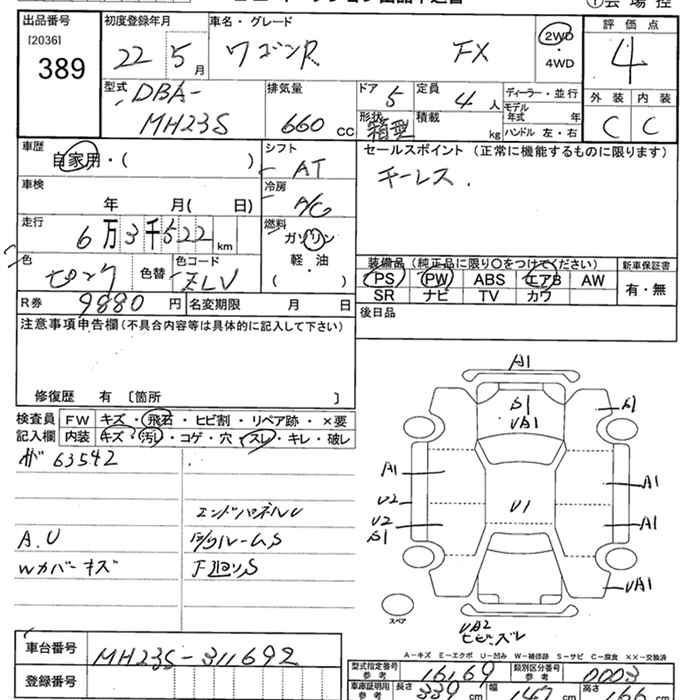 出品番号 初度登録年月 車名・グレード 評価点
[2036] 389 22 5月 ワゴンR FX 2WD・4WD 4
型式 DBA-MH23S 排気量 660 CC ドア 5 定員 4人 ディーラー・並行 外装 内装
形状 箱型 積載 kg モデル年式 年式 ハンドル 左・右 C C
車歴 自家用・( ) シフト AT セールスポイント (正常に機能するものに限ります)
車検 年 月( 日) 冷房 A/C キーレス.
走行 6万3千522 km 燃料 ガソリン 軽・油 ( )
色 ピンク 色替 色コード ZLV
装備品 (純正品に限り〇をつけてください) 新車保証書
PS PW ABS エアB AW 有・無
SR ナビ TV カワ
R券 9880 円 名変期限 月 日 後日品
注意事項申告欄 (不具合内容等は具体的に記入して下さい)
修復歴 有 〔箇所 〕
検査員 FW キズ・飛石・ヒビ割・リペア跡・×要
記入欄 内装 キズ・汚レ・コゲ・穴・スレ・キレ・破レ
63542
エンドパネルU
A.U
Wカバーキズ
A1
S1
UA1
S1
A1
A1
U2
U1
U2
S1
A1
UA1
スペア
UA2
A-キズ E-エクボ U-凹み W-補修跡 S-サビ C-腐食 ××-交換済
車台番号 MH23S-311692
登録番号
型式指定番号 参考 16169 類別区分番号 参考 0003
車庫証明用 参考 長さ 339 cm 幅 147 cm 高さ 166 cm